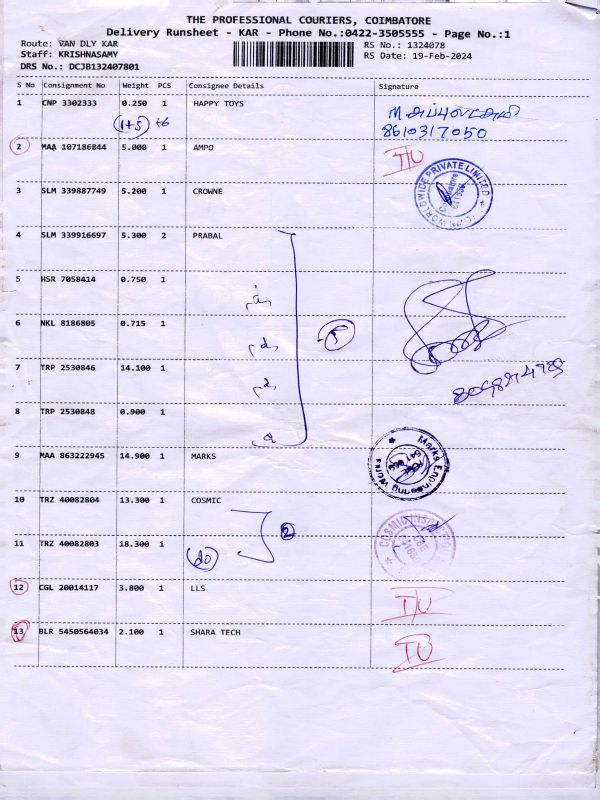 THE PROFESSIONAL COURIERS, COIMBATORE
Delivery Runsheet - KAR - Phone No.:0422-3505555 - Page No.:1
Route: VAN DLY KAR RS No.: 1324078
Staff: KRISHNASAMY RS Date: 19-Feb-2024
DRS No.: DCJB132407801
S No Consignment No Weight PCS Consignee Details Signature
1 CNP 3302333 0.250 1 HAPPY TOYS
(1+5) +6 8610317050
2 MAA 107186844 5.000 1 AMPO I/U
3 SLM 339887749 5.200 1 CROWNE WORLDWIDE PRIVATE LIMITED
4 SLM 339916697 5.300 2 PRABAL
5 HSR 7058414 0.750 1
6 NKL 8186805 0.715 1
5
7 TRP 2530846 14.100 1
8 TRP 2530848 0.900 1
9 MAA 863222945 14.900 1 MARKS Marks Engineering Works
10 TRZ 40082804 13.300 1 COSMIC COSMIC
2
11 TRZ 40082803 18.300 1
do
12 CGL 20014117 3.800 1 LLS I/U
13 BLR 5450564034 2.100 1 SHARA TECH IU